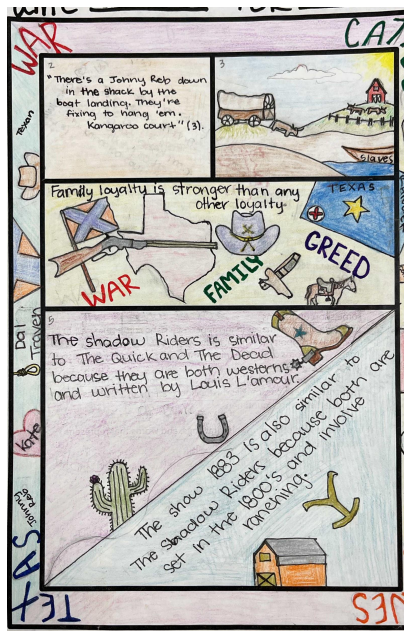 WAR
2
"There's a Johnny Reb down
in the shack by the
boat landing. They're
fixing to hang 'em.
Kangaroo court" (3).
3
slaves
Texan
Family loyalty is stronger than any
other loyalty.
TEXAS
WAR
FAMILY
GREED
5
The shadow Riders is similar
to The Quick and The Dead
because they are both westerns
and written by Louis L'amour.
The show 1883 is also similar to
The Shadow Riders because both are
set in the 1800's and involve
ranching.
Dal
Traven
Kate
Johnny
Reb
TEXAS